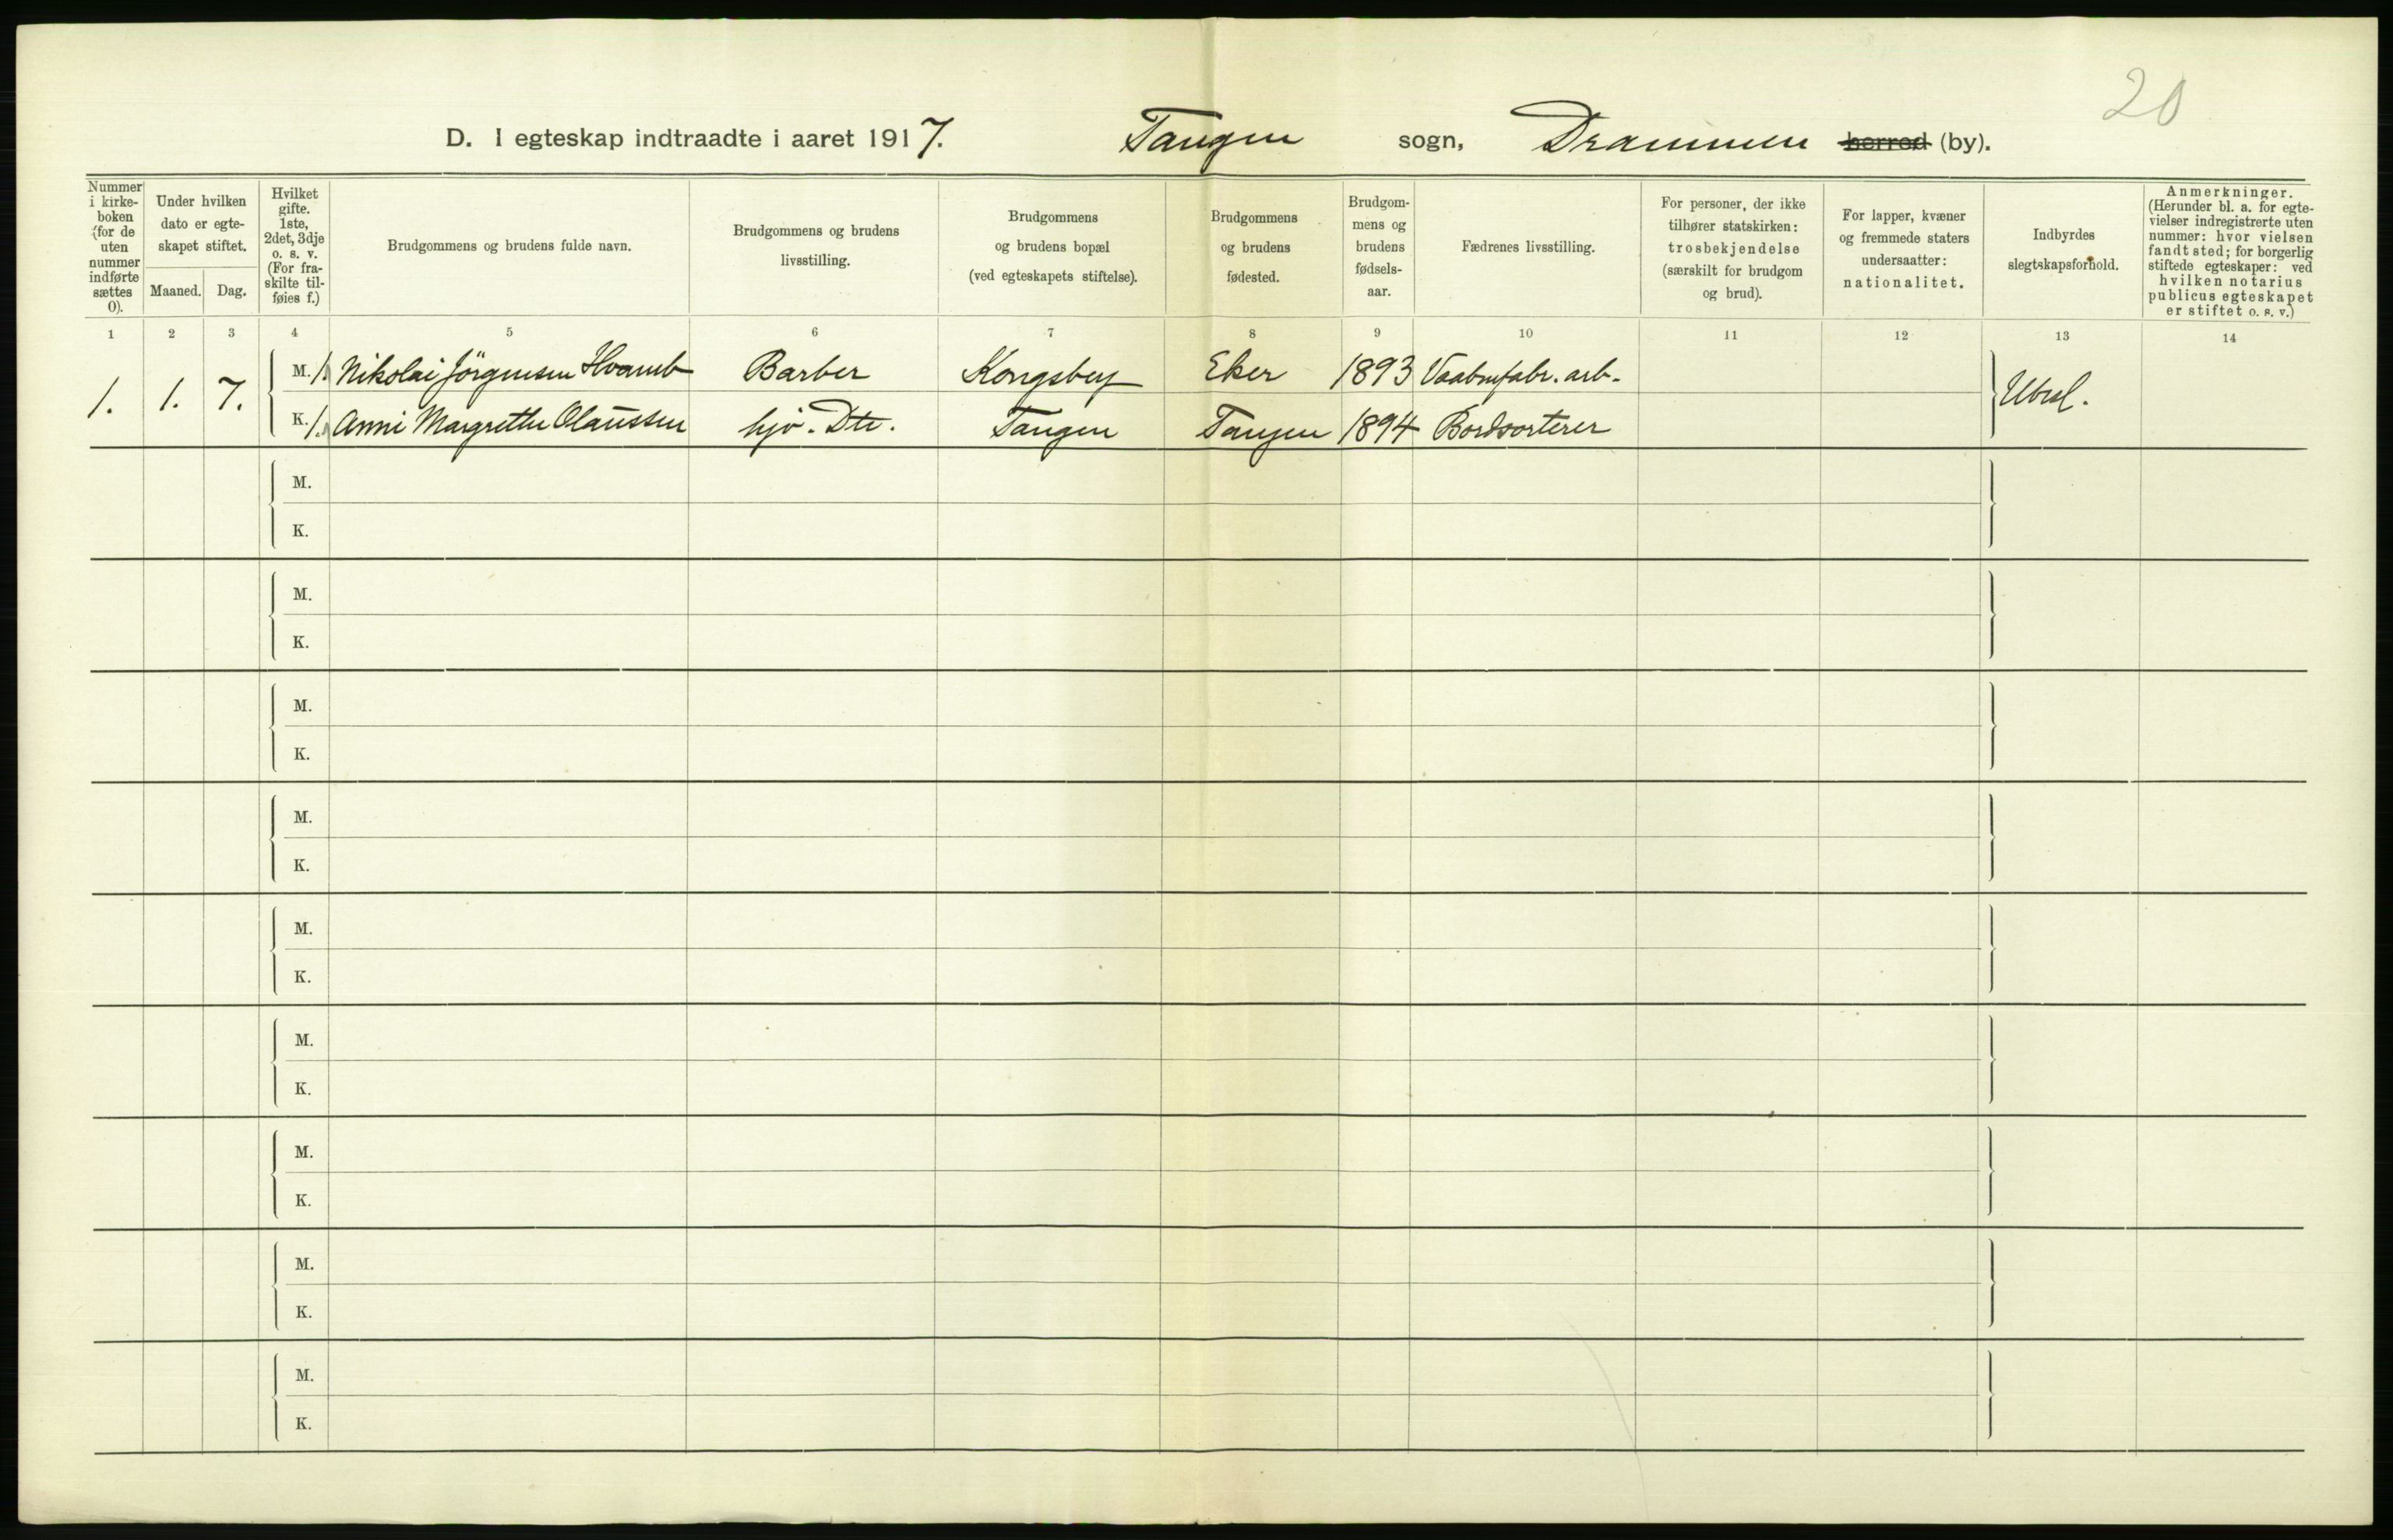 20
D. I egteskap indtraadte i aaret 1917. Tangen sogn, Drammen herred (by).
Nummer i kirke- boken (for de uten nummer indførte sættes 0).
Under hvilken dato er egte- skapet stiftet.
Maaned. Dag.
Hvilket gifte. 1ste, 2det, 3dje o. s. v. (For fra- skilte til- føies f.)
Brudgommens og brudens fulde navn.
Brudgommens og brudens livsstilling.
Brudgommens og brudens bopæl (ved egteskapets stiftelse).
Brudgommens og brudens fødested.
Brudgom- mens og brudens fødsels- aar.
Fædrenes livsstilling.
For personer, der ikke tilhører statskirken: trosbekjendelse (særskilt for brudgom og brud).
For lapper, kvæner og fremmede staters undersaatter: nationalitet.
Indbyrdes slegtskapsforhold.
Anmerkninger. (Herunder bl. a. for egte- vielser indregistrerte uten nummer: hvor vielsen fandt sted; for borgerlig stiftede egteskaper: ved hvilken notarius publicus egteskapet er stiftet o. s. v.)
1 2 3 4 5 6 7 8 9 10 11 12 13 14
1. 1. 7. M. 1. Nikolai Jörgensen Hvamb Barber Kongsberg Eker 1893 Vaabenfabr. arb. Ubesl.
K. 1. Anni Margrethe Olaussen hjv. Dtr. Tangen Tangen 1894 Bordsorterer
M.
K.
M.
K.
M.
K.
M.
K.
M.
K.
M.
K.
M.
K.
M.
K.
M.
K.